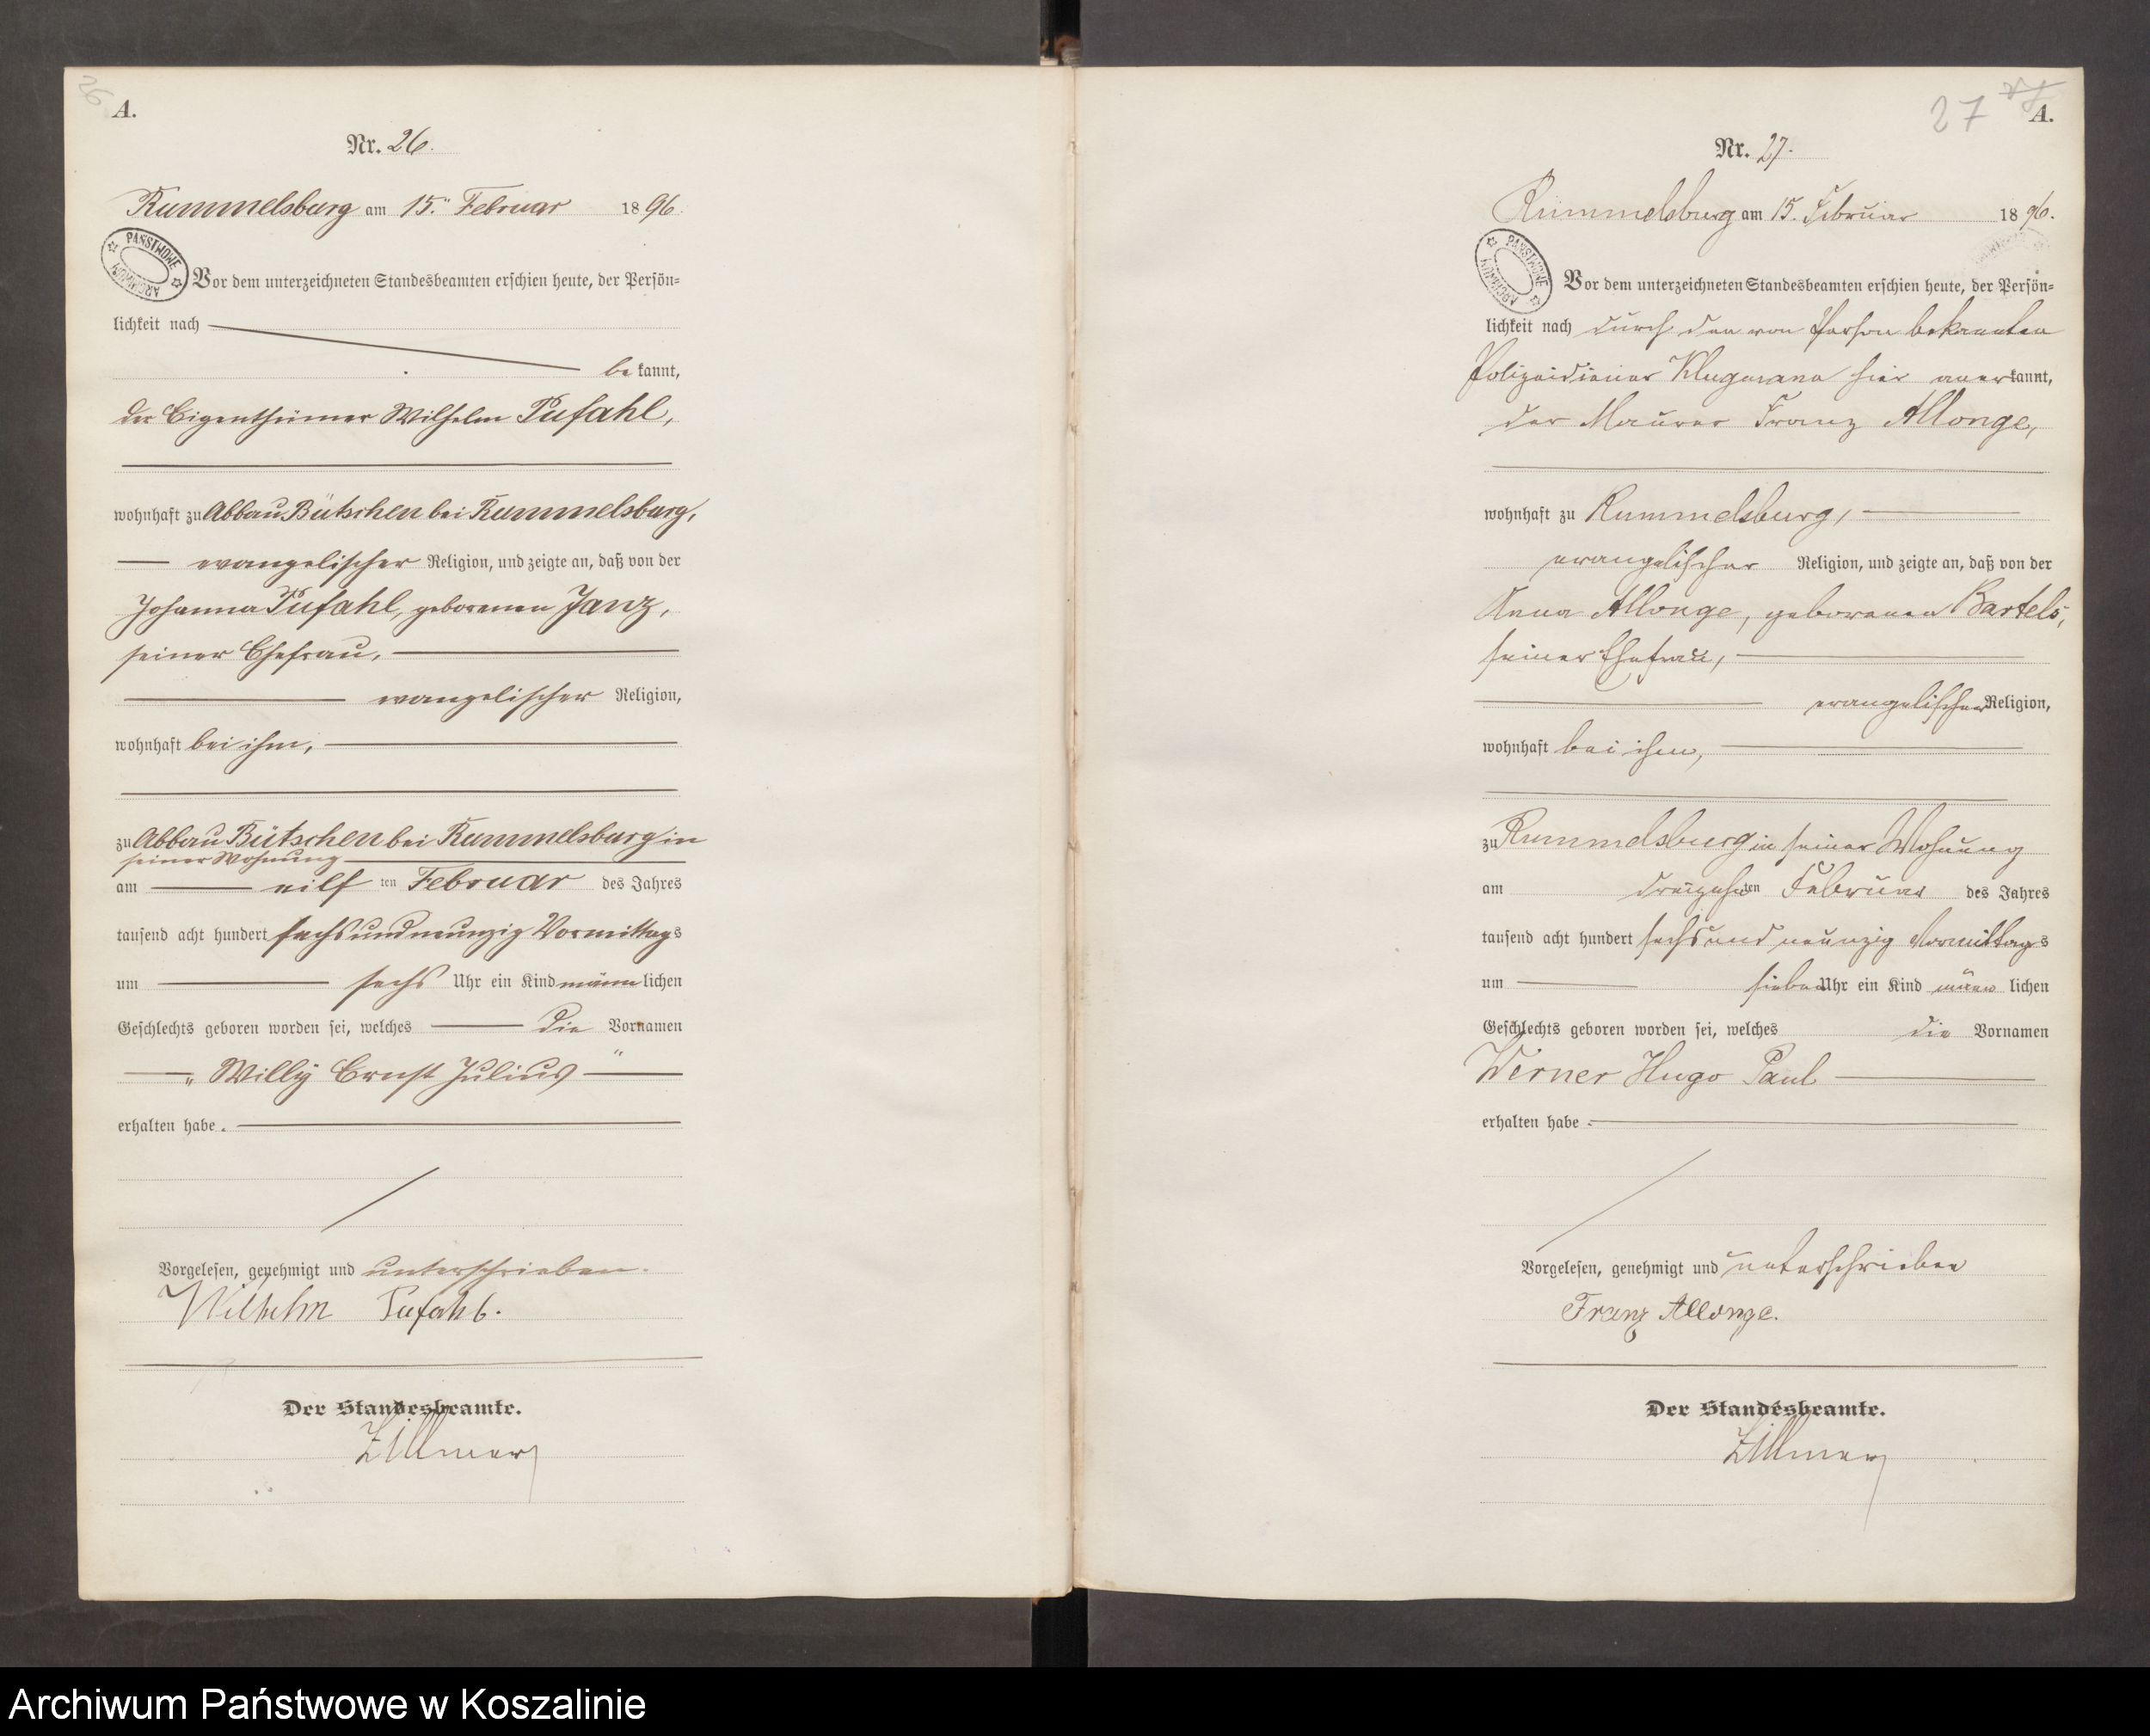 26
A.
Nr. 26.
Rummelsburg am 15. Februar 1896.
PAŃSTWOWE ARCHIWUM
Vor dem unterzeichneten Standesbeamten erschien heute, der Persön=
lichkeit nach
bekannt,
der Eigenthümer Wilhelm Pufahl,
wohnhaft zu Abbau Bütschen bei Rummelsburg,
evangelischer Religion, und zeigte an, daß von der
Johanna Pufahl, geborenen Janz,
seiner Ehefrau,
evangelischer Religion,
wohnhaft bei ihm,
zu Abbau Bütschen bei Rummelsburg in
seiner Wohnung
am eilften Februar des Jahres
tausend acht hundert sechsundneunzig Vormittags
um sechs Uhr ein Kind männlichen
Geschlechts geboren worden sei, welches die Vornamen
„Willy Ernst Julius“
erhalten habe.
Vorgelesen, genehmigt und unterschrieben.
Wilhelm Pufahl.
Der Standesbeamte.
Zillmer
27
A.
Nr. 27.
Rummelsburg am 15. Februar 1896.
PAŃSTWOWE ARCHIWUM
Vor dem unterzeichneten Standesbeamten erschien heute, der Persön=
lichkeit nach durch den von Person bekannten
Polizeidiener Klugmann hier anerkannt,
der Maurer Franz Allonge,
wohnhaft zu Rummelsburg,
evangelischer Religion, und zeigte an, daß von der
Anna Allonge, geborenen Bartels,
seiner Ehefrau,
evangelischer Religion,
wohnhaft bei ihm,
zu Rummelsburg in seiner Wohnung
am dreizehnten Februar des Jahres
tausend acht hundert sechsundneunzig Vormittags
um sieben Uhr ein Kind männlichen
Geschlechts geboren worden sei, welches die Vornamen
Werner Hugo Paul
erhalten habe.
Vorgelesen, genehmigt und unterschrieben
Franz Allonge.
Der Standesbeamte.
Zillmer
Archiwum Państwowe w Koszalinie